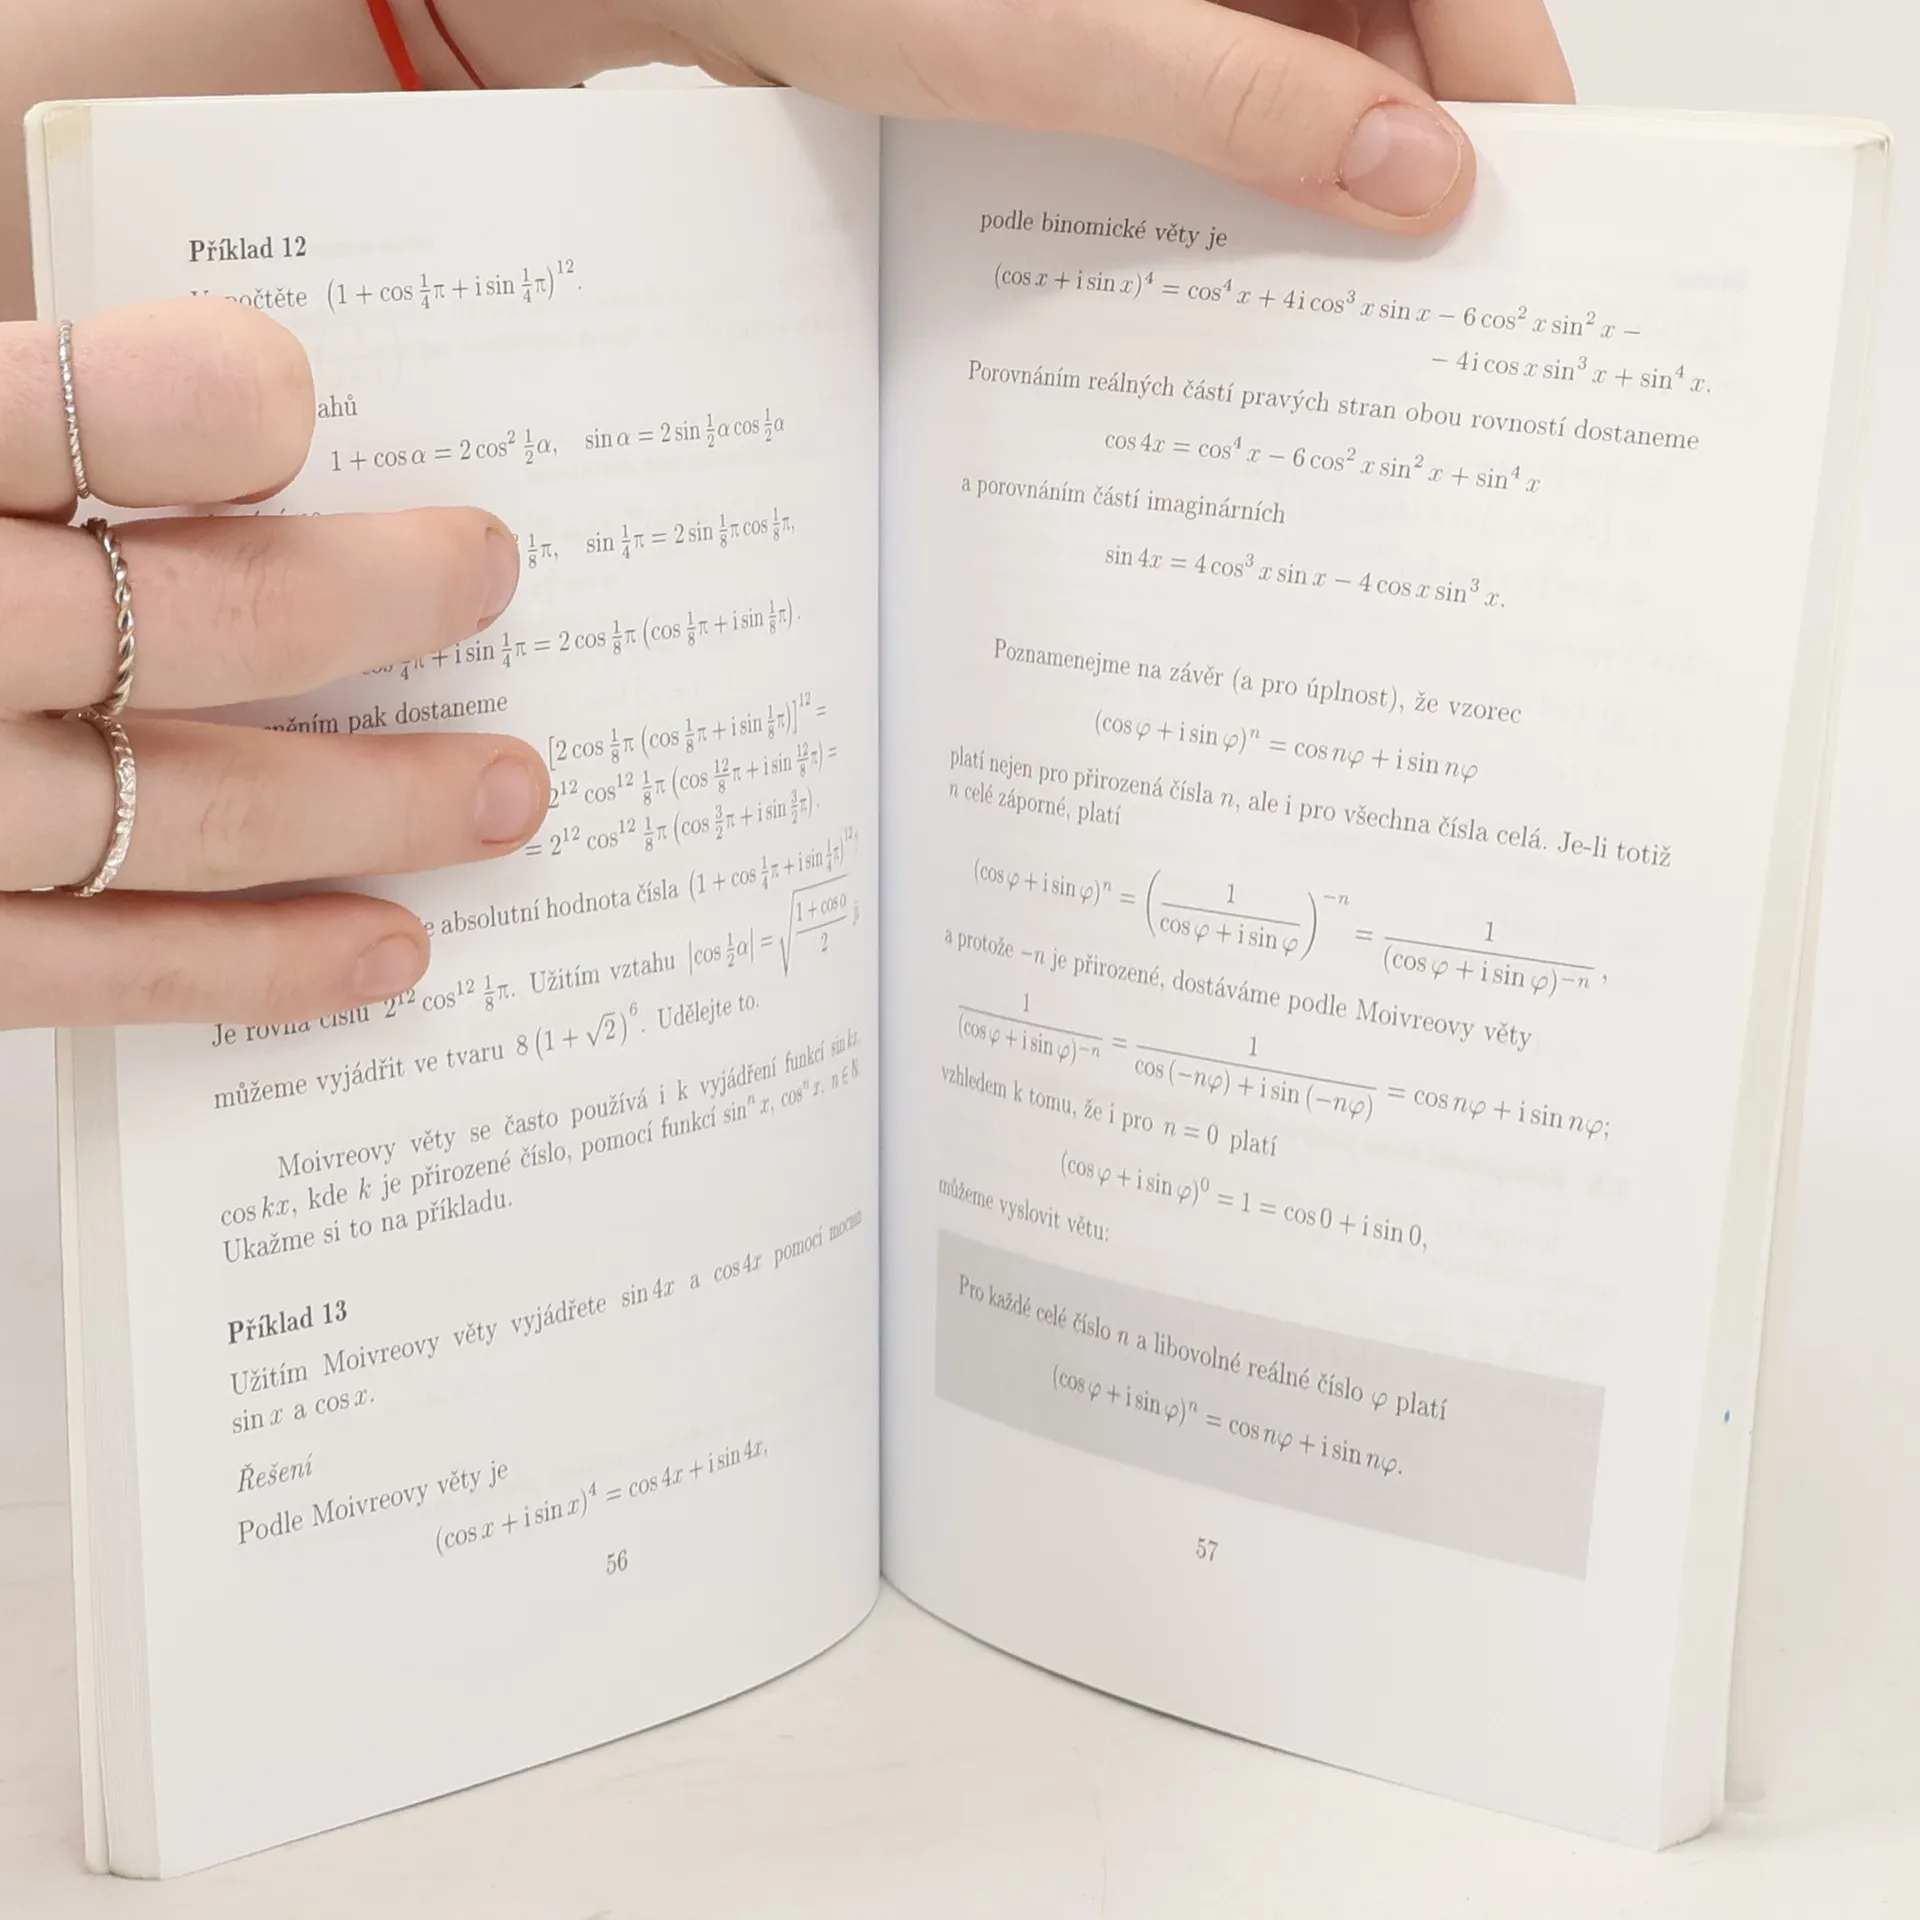 Příklad 12
počtěte (1 + cos ¼π + i sin ¼π)¹².
ahů
1 + cos α = 2 cos² ½α, sin α = 2 sin ½α cos ½α
⅛π, sin ¼π = 2 sin ⅛π cos ⅛π,
¼π + i sin ¼π = 2 cos ⅛π (cos ⅛π + i sin ⅛π).
pak dostaneme
[2 cos ⅛π (cos ⅛π + i sin ⅛π)]¹² =
2¹² cos¹² ⅛π (cos 12/8 π + i sin 12/8 π) =
= 2¹² cos¹² ⅛π (cos 3/2 π + i sin 3/2 π).
absolutní hodnota čísla (1 + cos ¼π + i sin ¼π)¹²,
Je rovna číslu 2¹² cos¹² ⅛π. Užitím vztahu |cos ½α| = √((1 + cos α)/2) ji
můžeme vyjádřit ve tvaru 8 (1 + √2)⁶. Udělejte to.
Moivreovy věty se často používá i k vyjádření funkcí sin kx,
cos kx, kde k je přirozené číslo, pomocí funkcí sinⁿ x, cosⁿ x, n ∈ N.
Ukažme si to na příkladu.
Příklad 13
Užitím Moivreovy věty vyjádřete sin 4x a cos 4x pomocí mocnin
sin x a cos x.
Řešení
Podle Moivreovy věty je
(cos x + i sin x)⁴ = cos 4x + i sin 4x,
56
podle binomické věty je
(cos x + i sin x)⁴ = cos⁴ x + 4i cos³ x sin x − 6 cos² x sin² x −
− 4i cos x sin³ x + sin⁴ x.
Porovnáním reálných částí pravých stran obou rovností dostaneme
cos 4x = cos⁴ x − 6 cos² x sin² x + sin⁴ x
a porovnáním částí imaginárních
sin 4x = 4 cos³ x sin x − 4 cos x sin³ x.
Poznamenejme na závěr (a pro úplnost), že vzorec
(cos φ + i sin φ)ⁿ = cos nφ + i sin nφ
platí nejen pro přirozená čísla n, ale i pro všechna čísla celá. Je-li totiž
n celé záporné, platí
(cos φ + i sin φ)ⁿ = (1/(cos φ + i sin φ))⁻ⁿ = 1/(cos φ + i sin φ)⁻ⁿ,
a protože −n je přirozené, dostáváme podle Moivreovy věty
1/(cos φ + i sin φ)⁻ⁿ = 1/(cos (−nφ) + i sin (−nφ)) = cos nφ + i sin nφ;
vzhledem k tomu, že i pro n = 0 platí
(cos φ + i sin φ)⁰ = 1 = cos 0 + i sin 0,
můžeme vyslovit větu:
Pro každé celé číslo n a libovolné reálné číslo φ platí
(cos φ + i sin φ)ⁿ = cos nφ + i sin nφ.
57